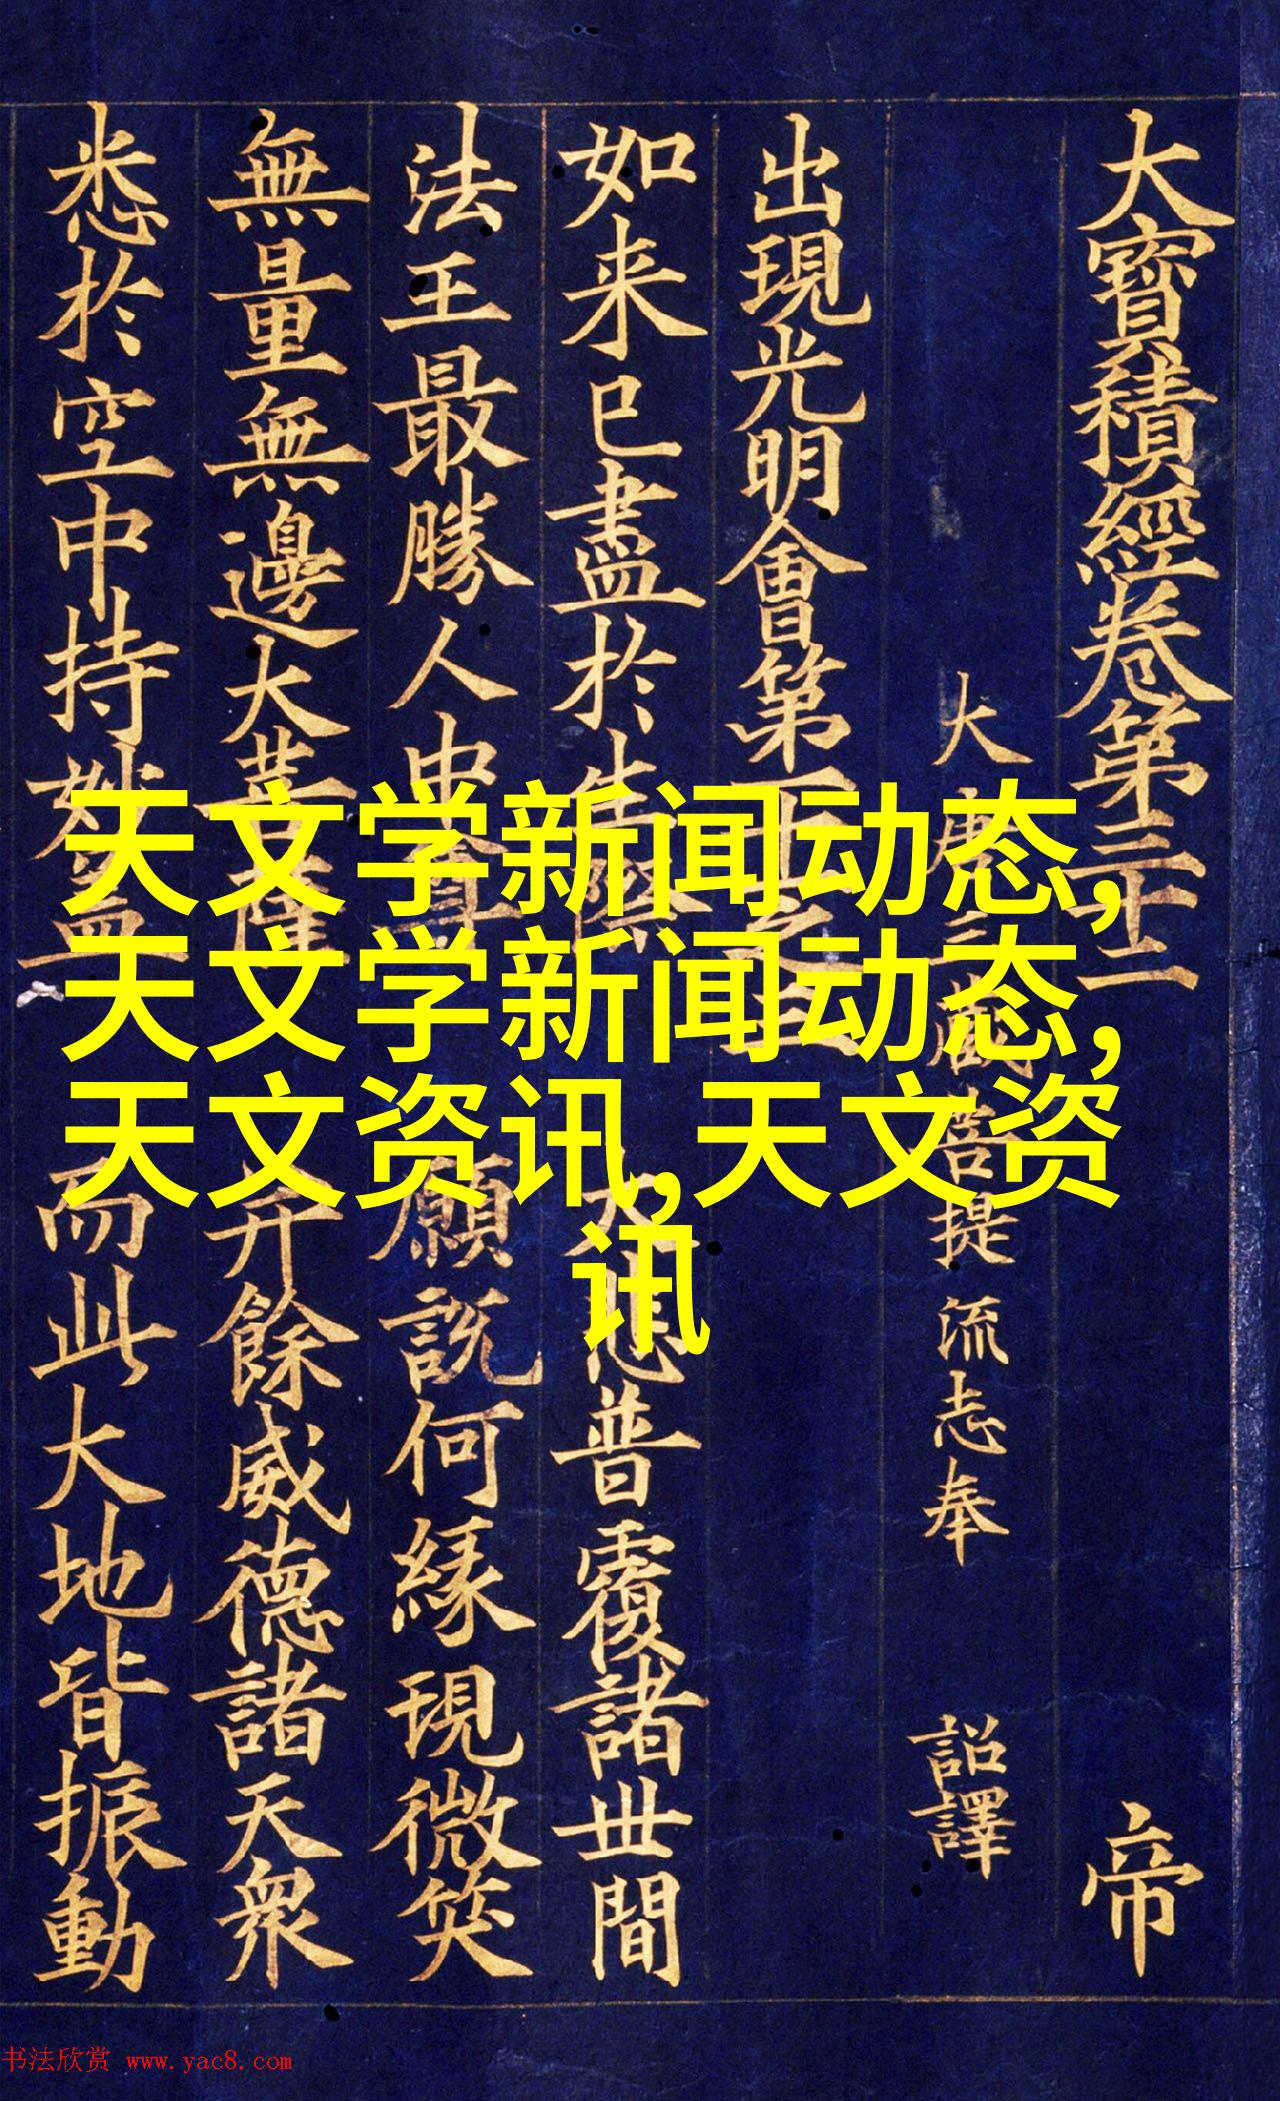 大寶積經卷第三十二 帝
大唐三藏菩提流志奉 詔譯
出現光明會第十一之三
如来已盡於生際 大悲普覆諸世間
法王最勝人中尊 願說何緣現微笑
無量無邊大菩薩 并餘威德諸天衆
悉於空中持妙盖 而此大地皆振動
天文学新闻动态,
天文学新闻动态,
天文资讯,天文资
讯
书法欣赏 www.yac8.com